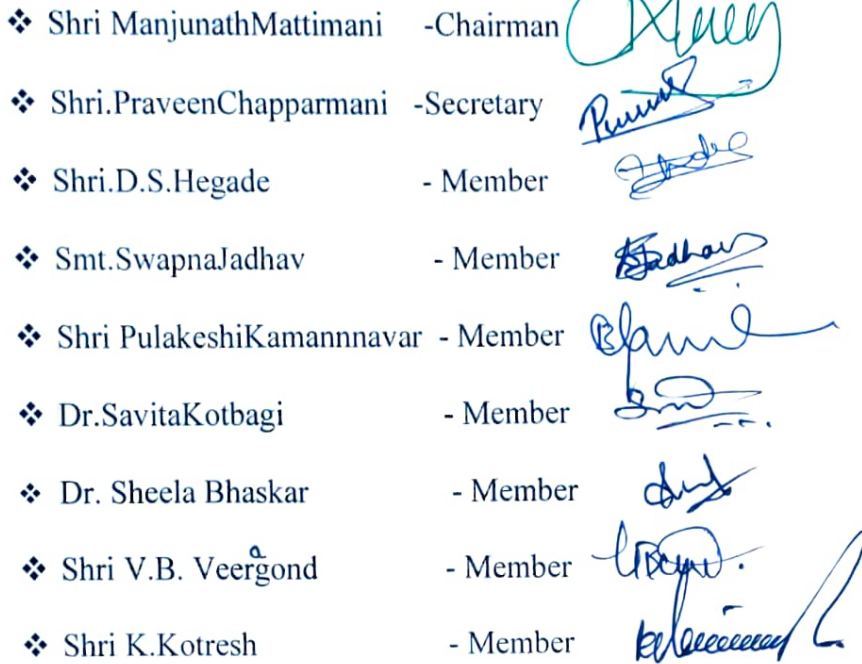 ❖ Shri ManjunathMattimani -Chairman
❖ Shri.PraveenChapparmani -Secretary
❖ Shri.D.S.Hegade - Member
❖ Smt.SwapnaJadhav - Member Jadhav
❖ Shri PulakeshiKamannnavar - Member
❖ Dr.SavitaKotbagi - Member
❖ Dr. Sheela Bhaskar - Member
❖ Shri V.B. Veeragond - Member
❖ Shri K.Kotresh - Member